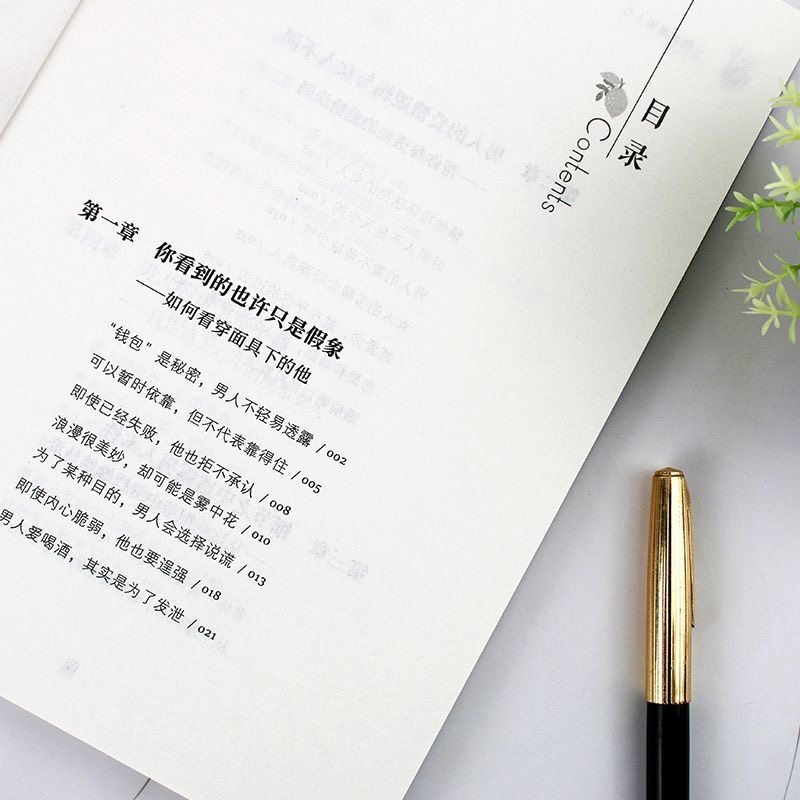 目录
Contents
第一章 你看到的也许只是假象
——如何看穿面具下的他
“钱包”是秘密，男人不轻易透露 / 002
可以暂时依靠，但不代表靠得住 / 005
即使已经失败，他也拒不承认 / 008
浪漫很美妙，却可能是雾中花 / 010
为了某种目的，男人会选择说谎 / 013
即使内心脆弱，他也要逞强 / 018
男人爱喝酒，其实是为了发泄 / 021